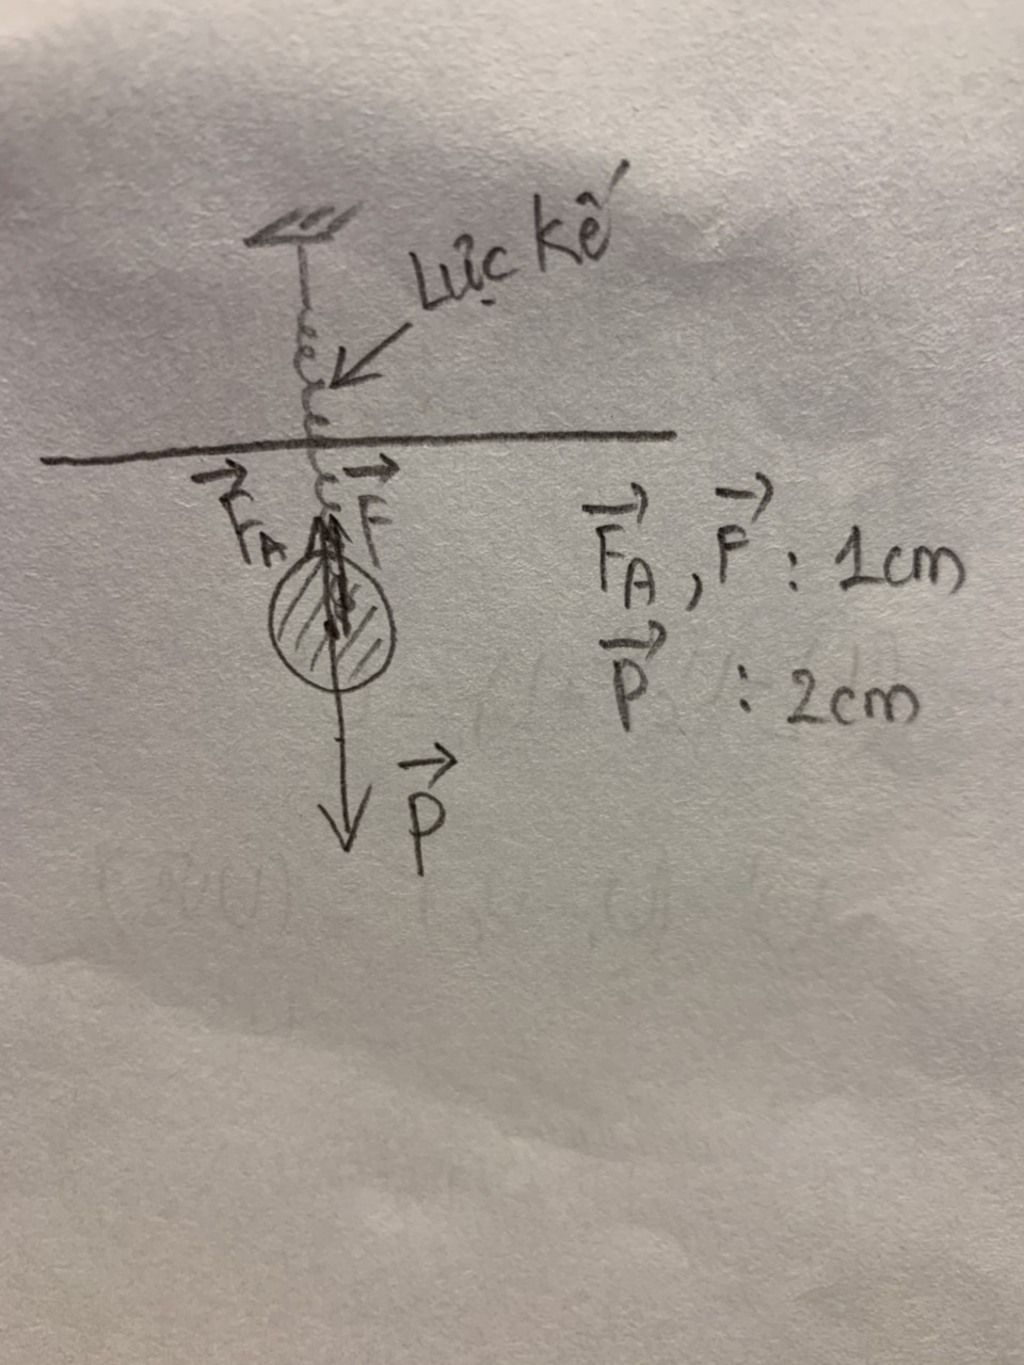 Lực kế
F⃗A F⃗
F⃗A , F⃗ : 1cm
P⃗ : 2cm
P⃗